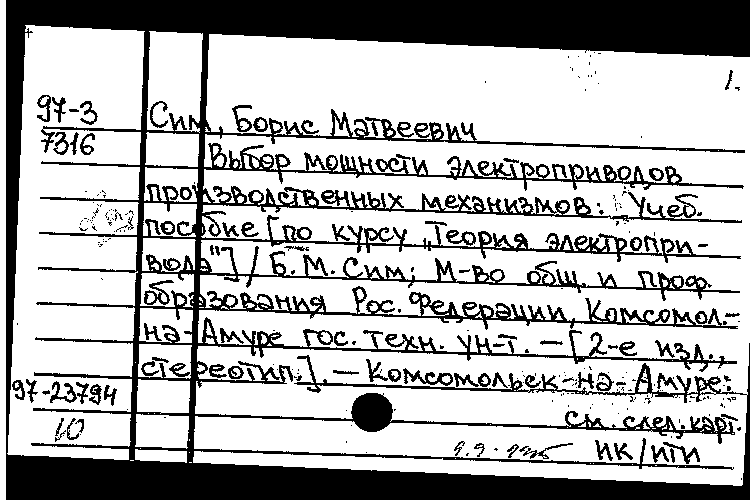 1.
97-3
7316
Сим, Борис Матвеевич
Выбор мощности электроприводов
производственных механизмов: Учеб.
пособие [по курсу „Теория электропри-
вода"] / Б.М. Сим; М-во общ. и проф.
образования Рос. Федерации, Комсомол.-
на-Амуре гос. техн. ун-т. – [2-е изд.,
стереотип.]. – Комсомольск-на-Амуре:
97-23794
см. след. карт.
10
НК/ИТИ